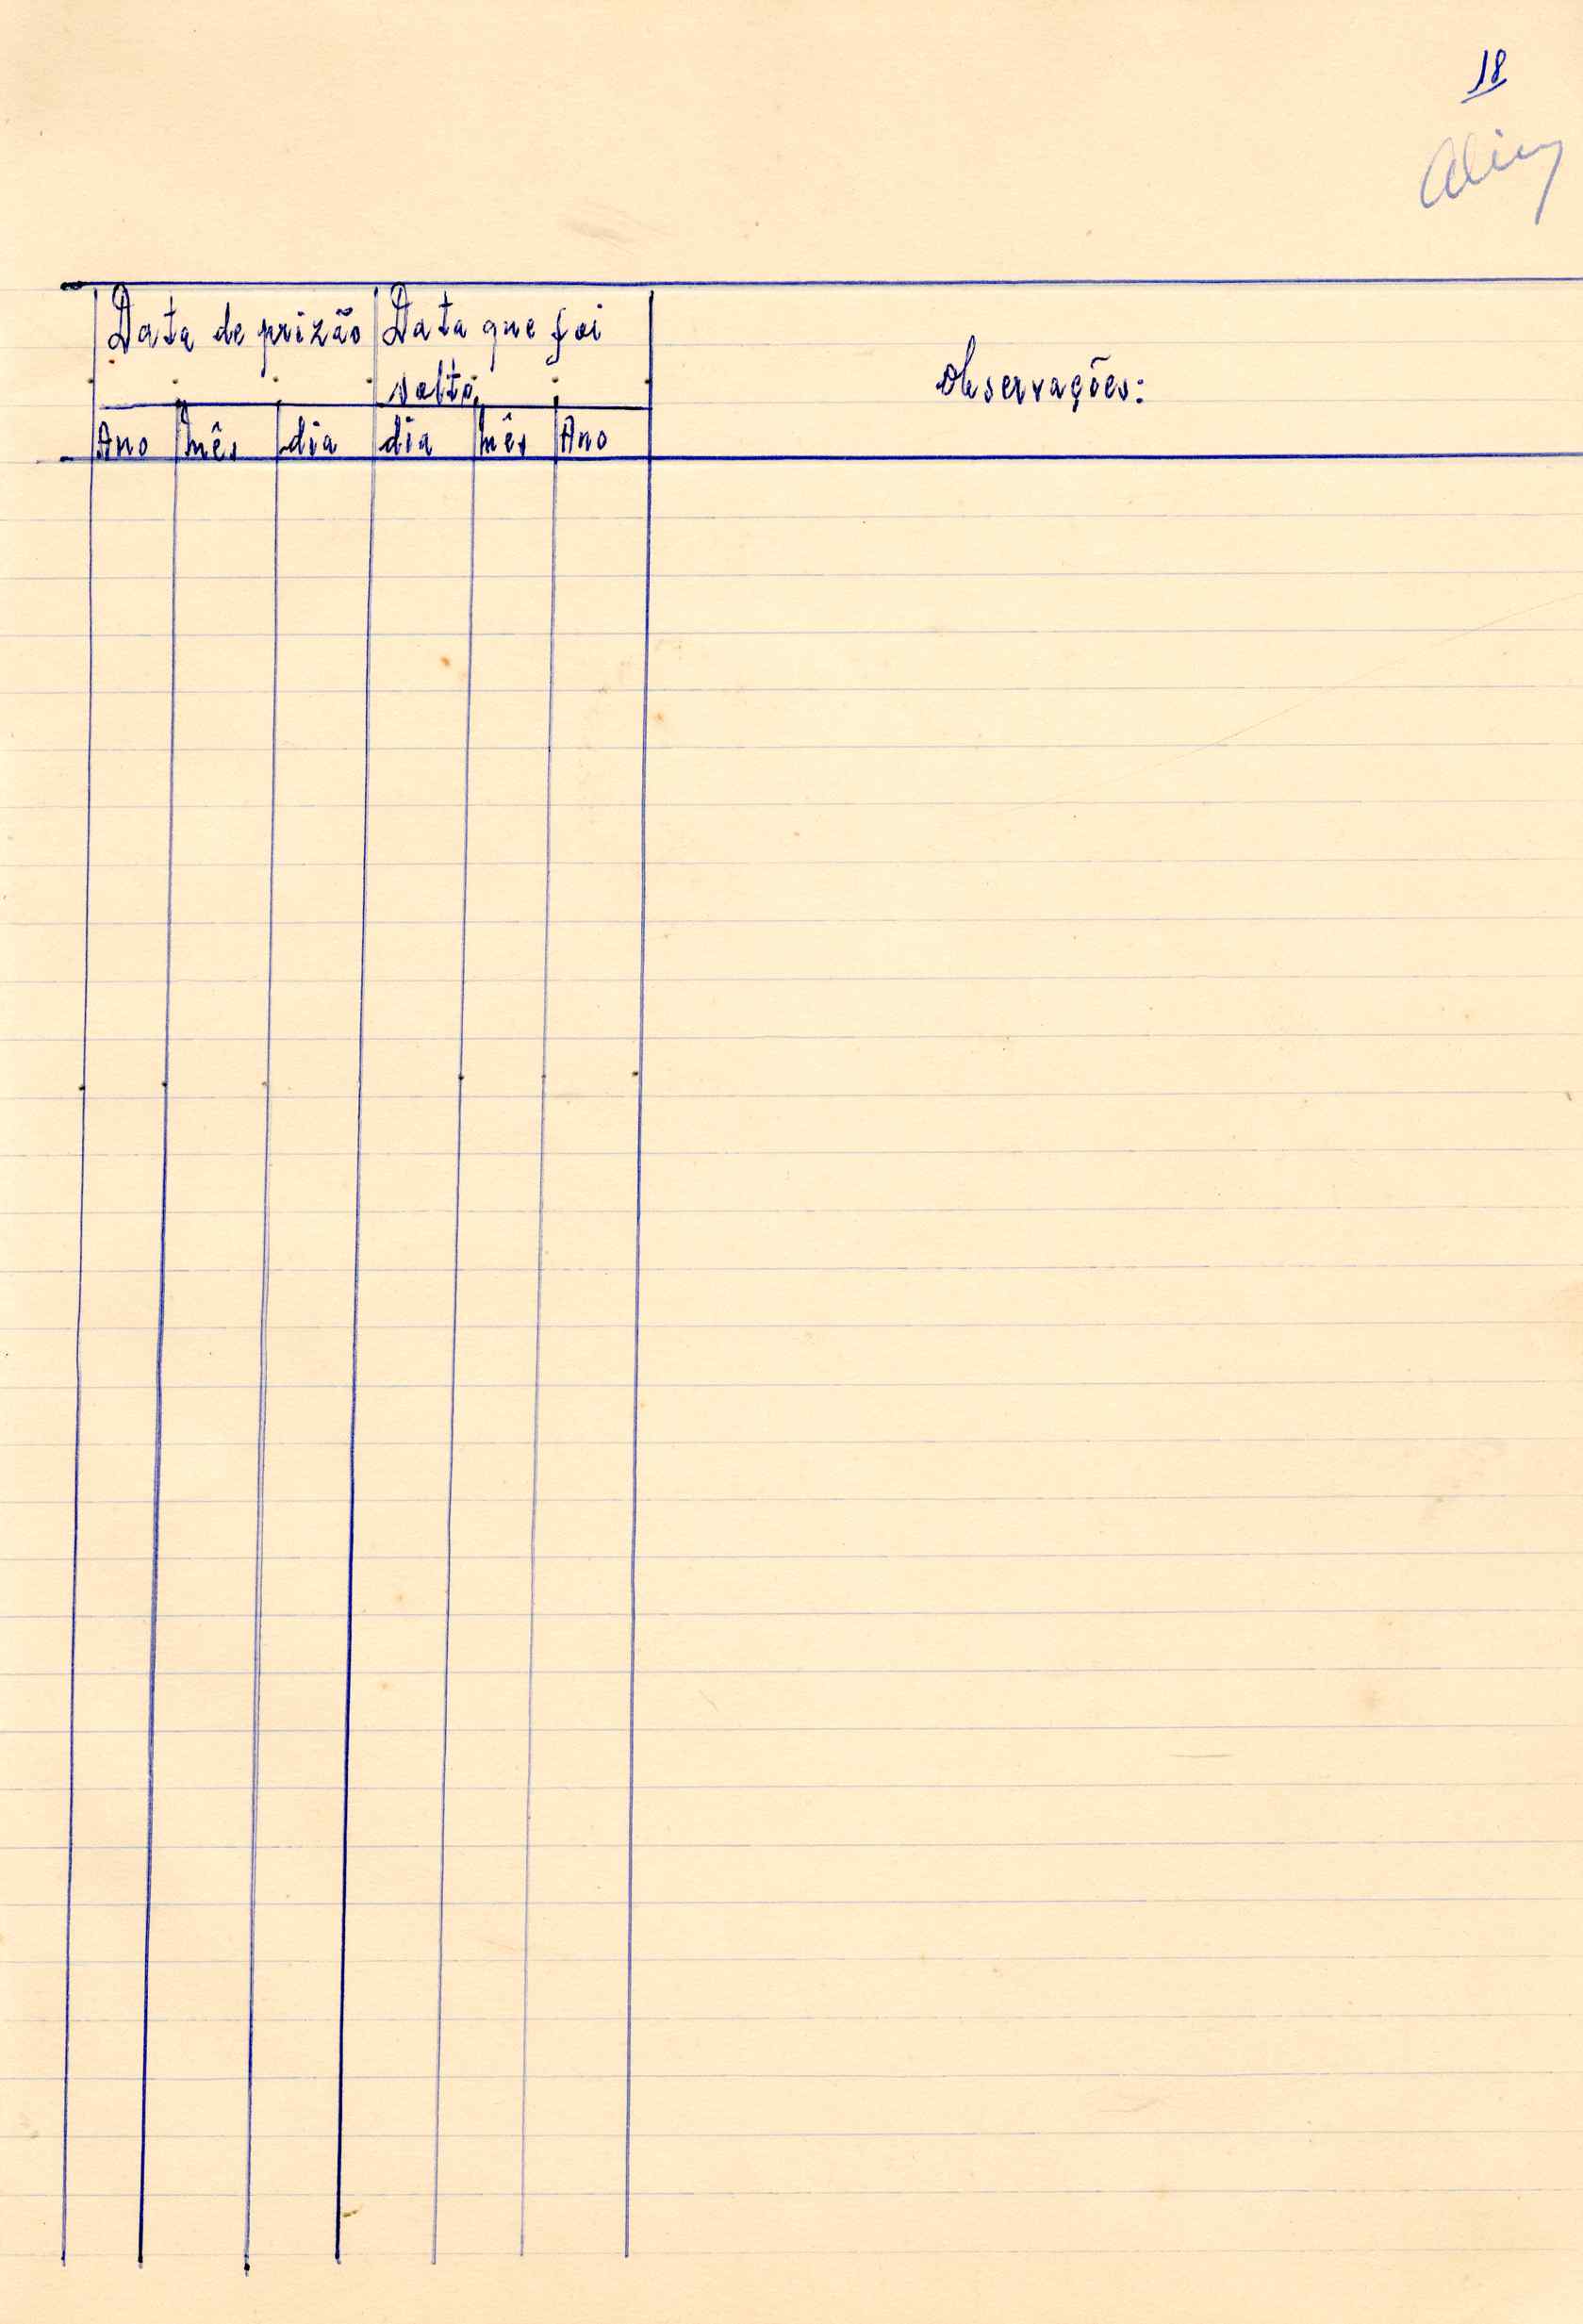 18
Data de prizão Data que foi
solto.
Observações:
Ano Mês dia dia Mês Ano